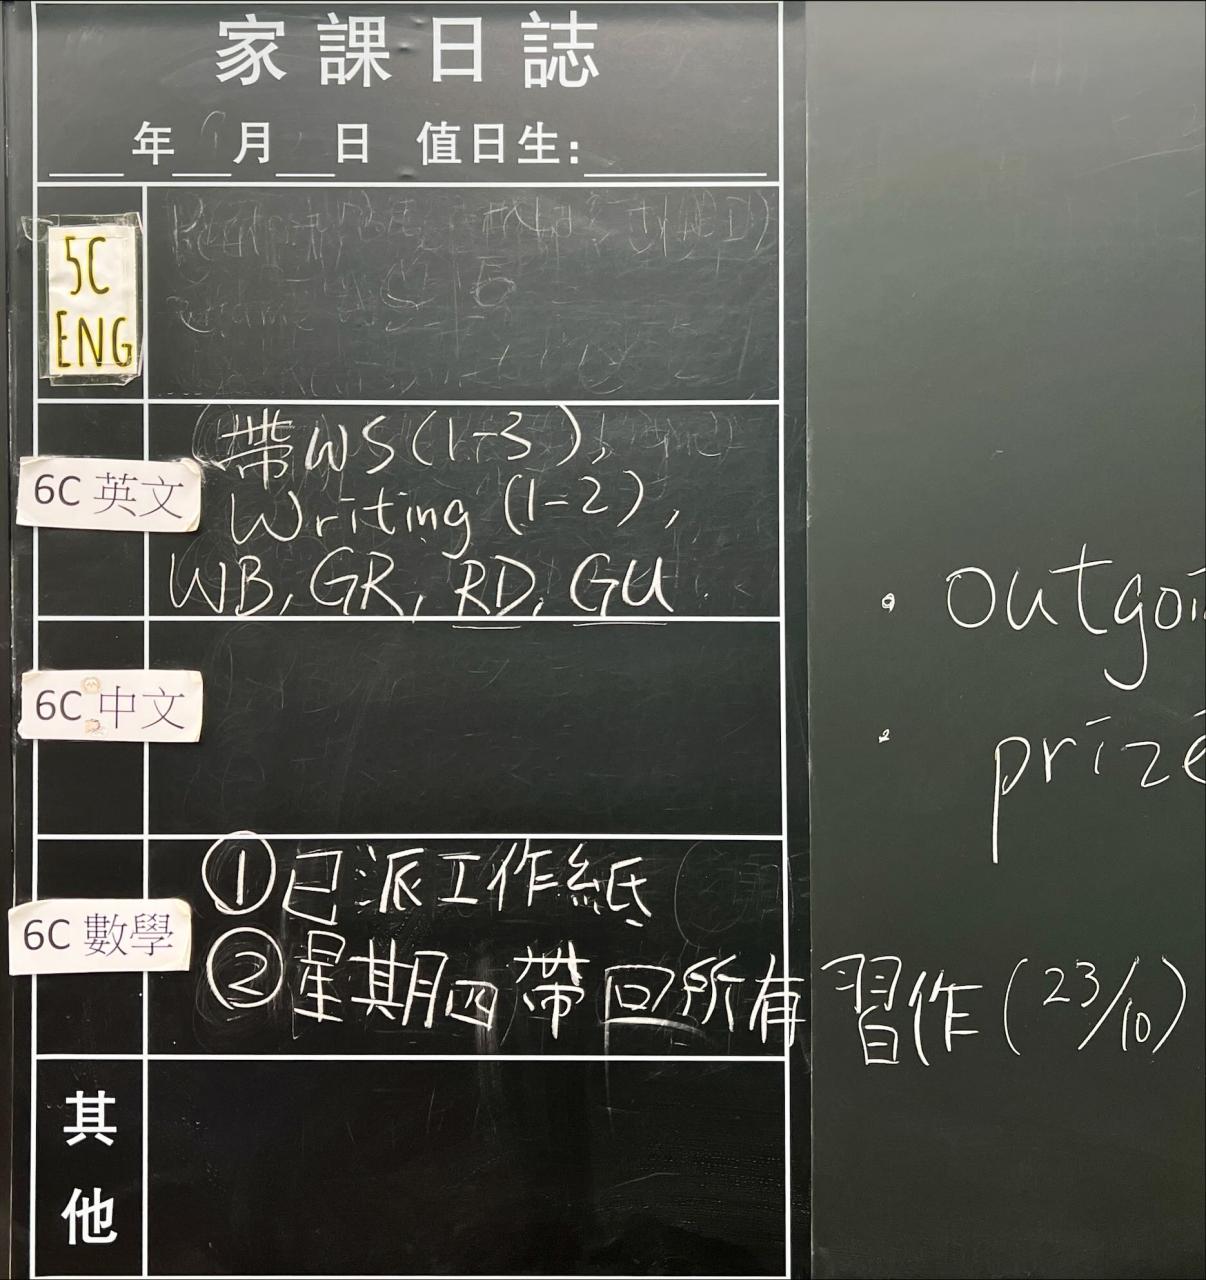 家課日誌
年 月 日 值日生:
5C
ENG
6C 英文
帶WS(1-3),
Writing (1-2),
WB, GR, RD, GU
6C 中文
6C 數學
①已派工作紙
②星期四帶回所有習作(23/10)
其
他
• outgoi
• prize